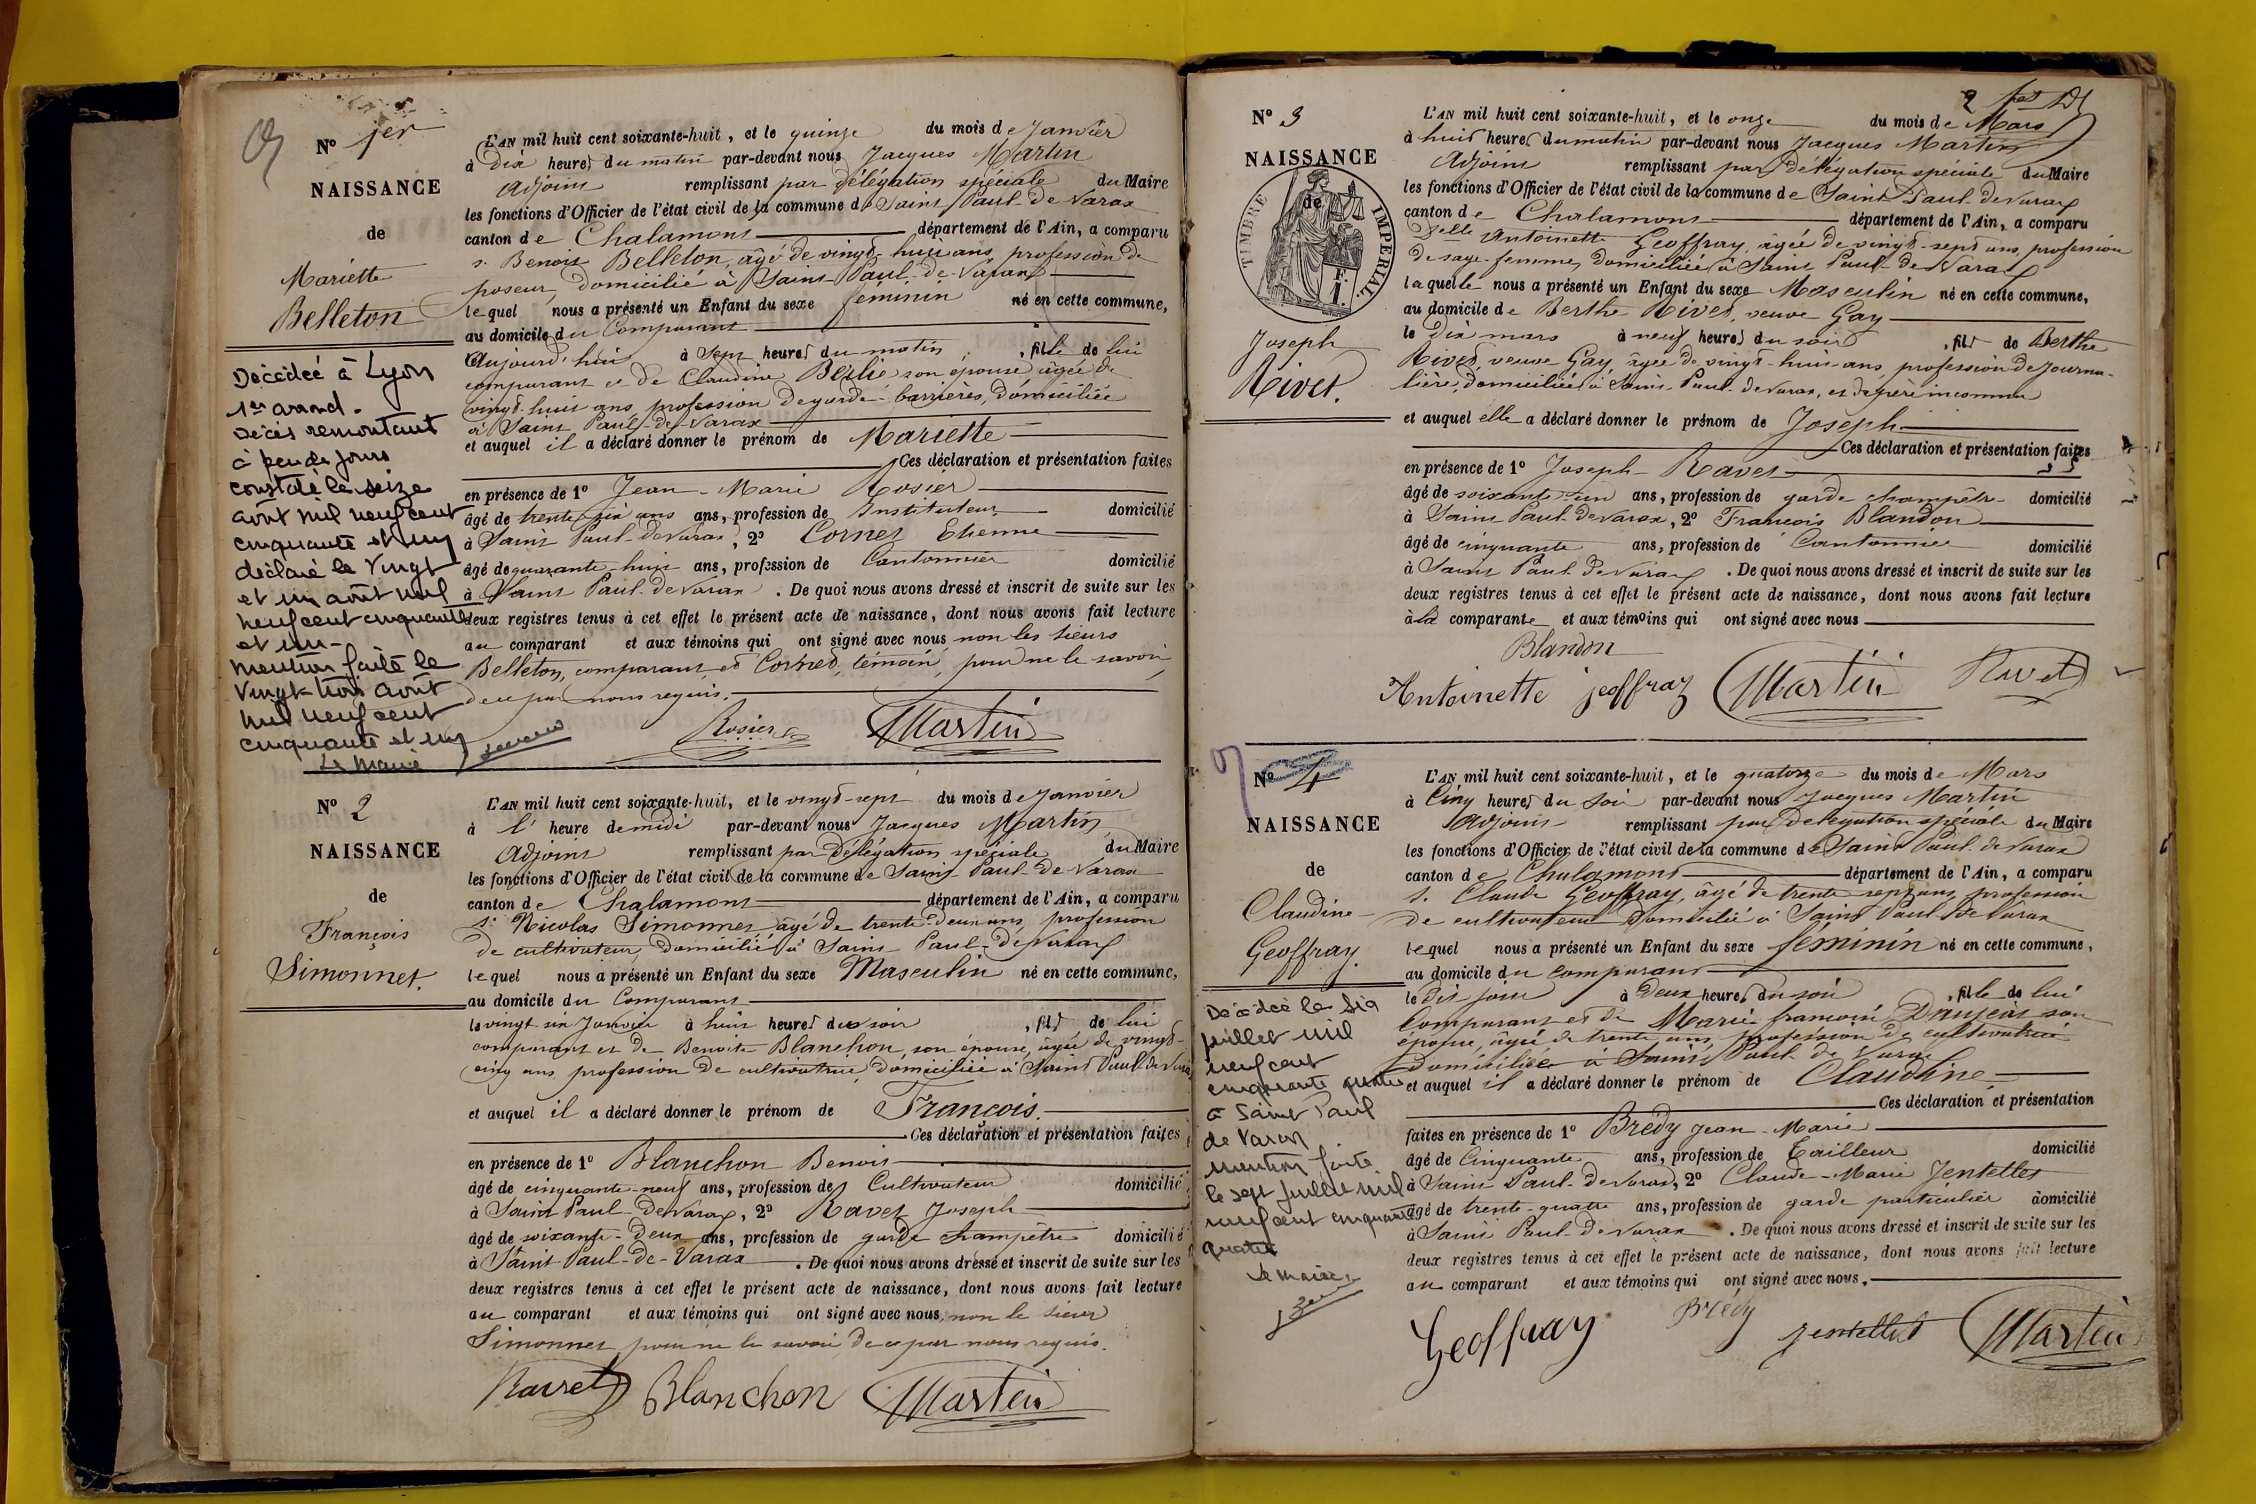 N° 1er
NAISSANCE
de
Mariette
Belleton
Décédée à Lyon
1er arrond.
décès remontant
à peu de jours
constaté le seize
août mil neuf cent
cinquante et un
déclaré le vingt
et un août mil
neuf cent cinquante
et un -
mention faite le
vingt-trois août
mil neuf cent
cinquante et un
Le Maire
L'AN mil huit cent soixante-huit, et le quinze du mois de Janvier
à dix heures du matin par-devant nous Jacques Martin
Adjoint remplissant par délégation spéciale du Maire
les fonctions d'Officier de l'état civil de la commune de Saint Paul de Varax
canton de Chalamont département de l'Ain, a comparu
s. Benoit Belleton, âgé de vingt-huit ans, profession de
poseur, domicilié à Saint Paul-de-Varax
lequel nous a présenté un Enfant du sexe féminin né en cette commune,
au domicile du Comparant
Aujourd'hui à sept heures du matin, fille de lui
comparant et de Claudine Berlie son épouse âgée de
vingt-huit ans, profession de garde-barrières, domiciliée
à Saint Paul-de-Varax
et auquel il a déclaré donner le prénom de Mariette
Ces déclaration et présentation faites
en présence de 1° Jean-Marie Rosier
âgé de trente six ans ans, profession de Instituteur domicilié
à Saint Paul-de Varax, 2° Cornet Etienne
âgé de quarante-huit ans, profession de Cantonnier domicilié
à Saint Paul-de Varax. De quoi nous avons dressé et inscrit de suite sur les
deux registres tenus à cet effet le présent acte de naissance, dont nous avons fait lecture
au comparant et aux témoins qui ont signé avec nous non les sieurs
Belleton, comparant, et Cornet, témoin, pour ne le savoir,
de ce par nous requis.
Rosier Martin
N° 2
NAISSANCE
de
François
Simonnet.
L'AN mil huit cent soixante-huit, et le vingt-sept du mois de Janvier
à l' heure de midi par-devant nous Jacques Martin
Adjoint remplissant par Délégation spéciale du Maire
les fonctions d'Officier de l'état civil de la commune de Saint Paul-de Varax
canton de Chalamont département de l'Ain, a comparu
s. Nicolas Simonnet, âgé de trente deux ans, profession
de cultivateur, domicilié à Saint Paul-de Varax
lequel nous a présenté un Enfant du sexe Masculin né en cette commune,
au domicile du Comparant
le vingt six Janvier à huit heures du soir, fils de lui
comparant et de Benoite Blanchon, son épouse, âgée de vingt-
cinq ans, profession de cultivatrice, domiciliée à Saint Paul de Varax
et auquel il a déclaré donner le prénom de François.
Ces déclaration et présentation faites
en présence de 1° Blanchon Benoit
âgé de cinquante-neuf ans, profession de Cultivateur domicilié
à Saint Paul-de Varax, 2° Ravet Joseph
âgé de soixante-deux ans, profession de garde champêtre domicilié
à Saint Paul-de-Varax. De quoi nous avons dressé et inscrit de suite sur les
deux registres tenus à cet effet le présent acte de naissance, dont nous avons fait lecture
au comparant et aux témoins qui ont signé avec nous, non le sieur
Simonnet pour ne le savoir, de ce par nous requis.
Ravet Blanchon Martin
2
N° 3
NAISSANCE
de
TIMBRE IMPÉRIAL
Joseph
Rivet.
L'AN mil huit cent soixante-huit, et le onze du mois de Mars
à huit heures du matin par-devant nous Jacques Martin
Adjoint remplissant par délégation spéciale du Maire
les fonctions d'Officier de l'état civil de la commune de Saint Paul-de Varax
canton de Chalamont département de l'Ain, a comparu
Delle Antoinette Geoffray, âgée de vingt-sept ans, profession
de sage-femme, domiciliée à Saint Paul-de Varax
laquelle nous a présenté un Enfant du sexe Masculin né en cette commune,
au domicile de Berthe Rivet, veuve Gay
le dix mars à neuf heures du soir, fils de Berthe
Rivet, veuve Gay, âgée de vingt-huit ans, profession de Journa-
lière, domiciliée à Saint-Paul-de Varax, et de père inconnu
et auquel elle a déclaré donner le prénom de Joseph
Ces déclaration et présentation faites
en présence de 1° Joseph Ravet
âgé de soixante-un ans, profession de garde champêtre domicilié
à Saint Paul-de Varax, 2° François Blandon
âgé de cinquante ans, profession de Cantonnier domicilié
à Saint Paul-de Varax. De quoi nous avons dressé et inscrit de suite sur les
deux registres tenus à cet effet le présent acte de naissance, dont nous avons fait lecture
à la comparante et aux témoins qui ont signé avec nous
Blandon
Antoinette jeoffray Martin Ravet
N° 4
NAISSANCE
de
Claudine
Geoffray.
Décédée le six
juillet mil
neuf cent
cinquante quatre
à Saint Paul
de Varax
mention faite
le sept juillet mil
neuf cent cinquante
quatre
Le maire,
L'AN mil huit cent soixante-huit, et le quatorze du mois de Mars
à Cinq heures du Soir par-devant nous Jacques Martin
Adjoint remplissant par délégation spéciale du Maire
les fonctions d'Officier de l'état civil de la commune de Saint Paul-de Varax
canton de Chalamont département de l'Ain, a comparu
s. Claude Geoffray, âgé de trente sept ans, profession
de cultivateur domicilié à Saint Paul de Varax
lequel nous a présenté un Enfant du sexe féminin né en cette commune,
au domicile du comparant
le dit jour à Deux heures du soir, fille de lui
Comparant et de Marie françoise Daujeat son
épouse, âgée de trente ans, profession de cultivatrice
domiciliée à Saint Paul de Varax
et auquel il a déclaré donner le prénom de Claudine
Ces déclaration et présentation
faites en présence de 1° Bredy Jean-Marie
âgé de Cinquante ans, profession de Tailleur domicilié
à Saint Paul-de Varax, 2° Claude-Marie Jentellet
âgé de trente-quatre ans, profession de garde particulier domicilié
à Saint Paul-de Varax. De quoi nous avons dressé et inscrit de suite sur les
deux registres tenus à cet effet le présent acte de naissance, dont nous avons fait lecture
au comparant et aux témoins qui ont signé avec nous.
Geoffray Brédy Jentellet Martin